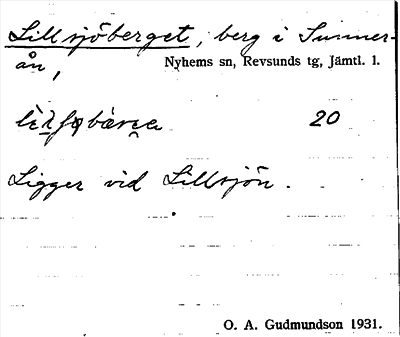 Lillsjöberget, berg i Sunner-
ån, Nyhems sn, Revsunds tg, Jämtl. l.
20
Ligger vid Lillsjön.
O. A. Gudmundson 1931.